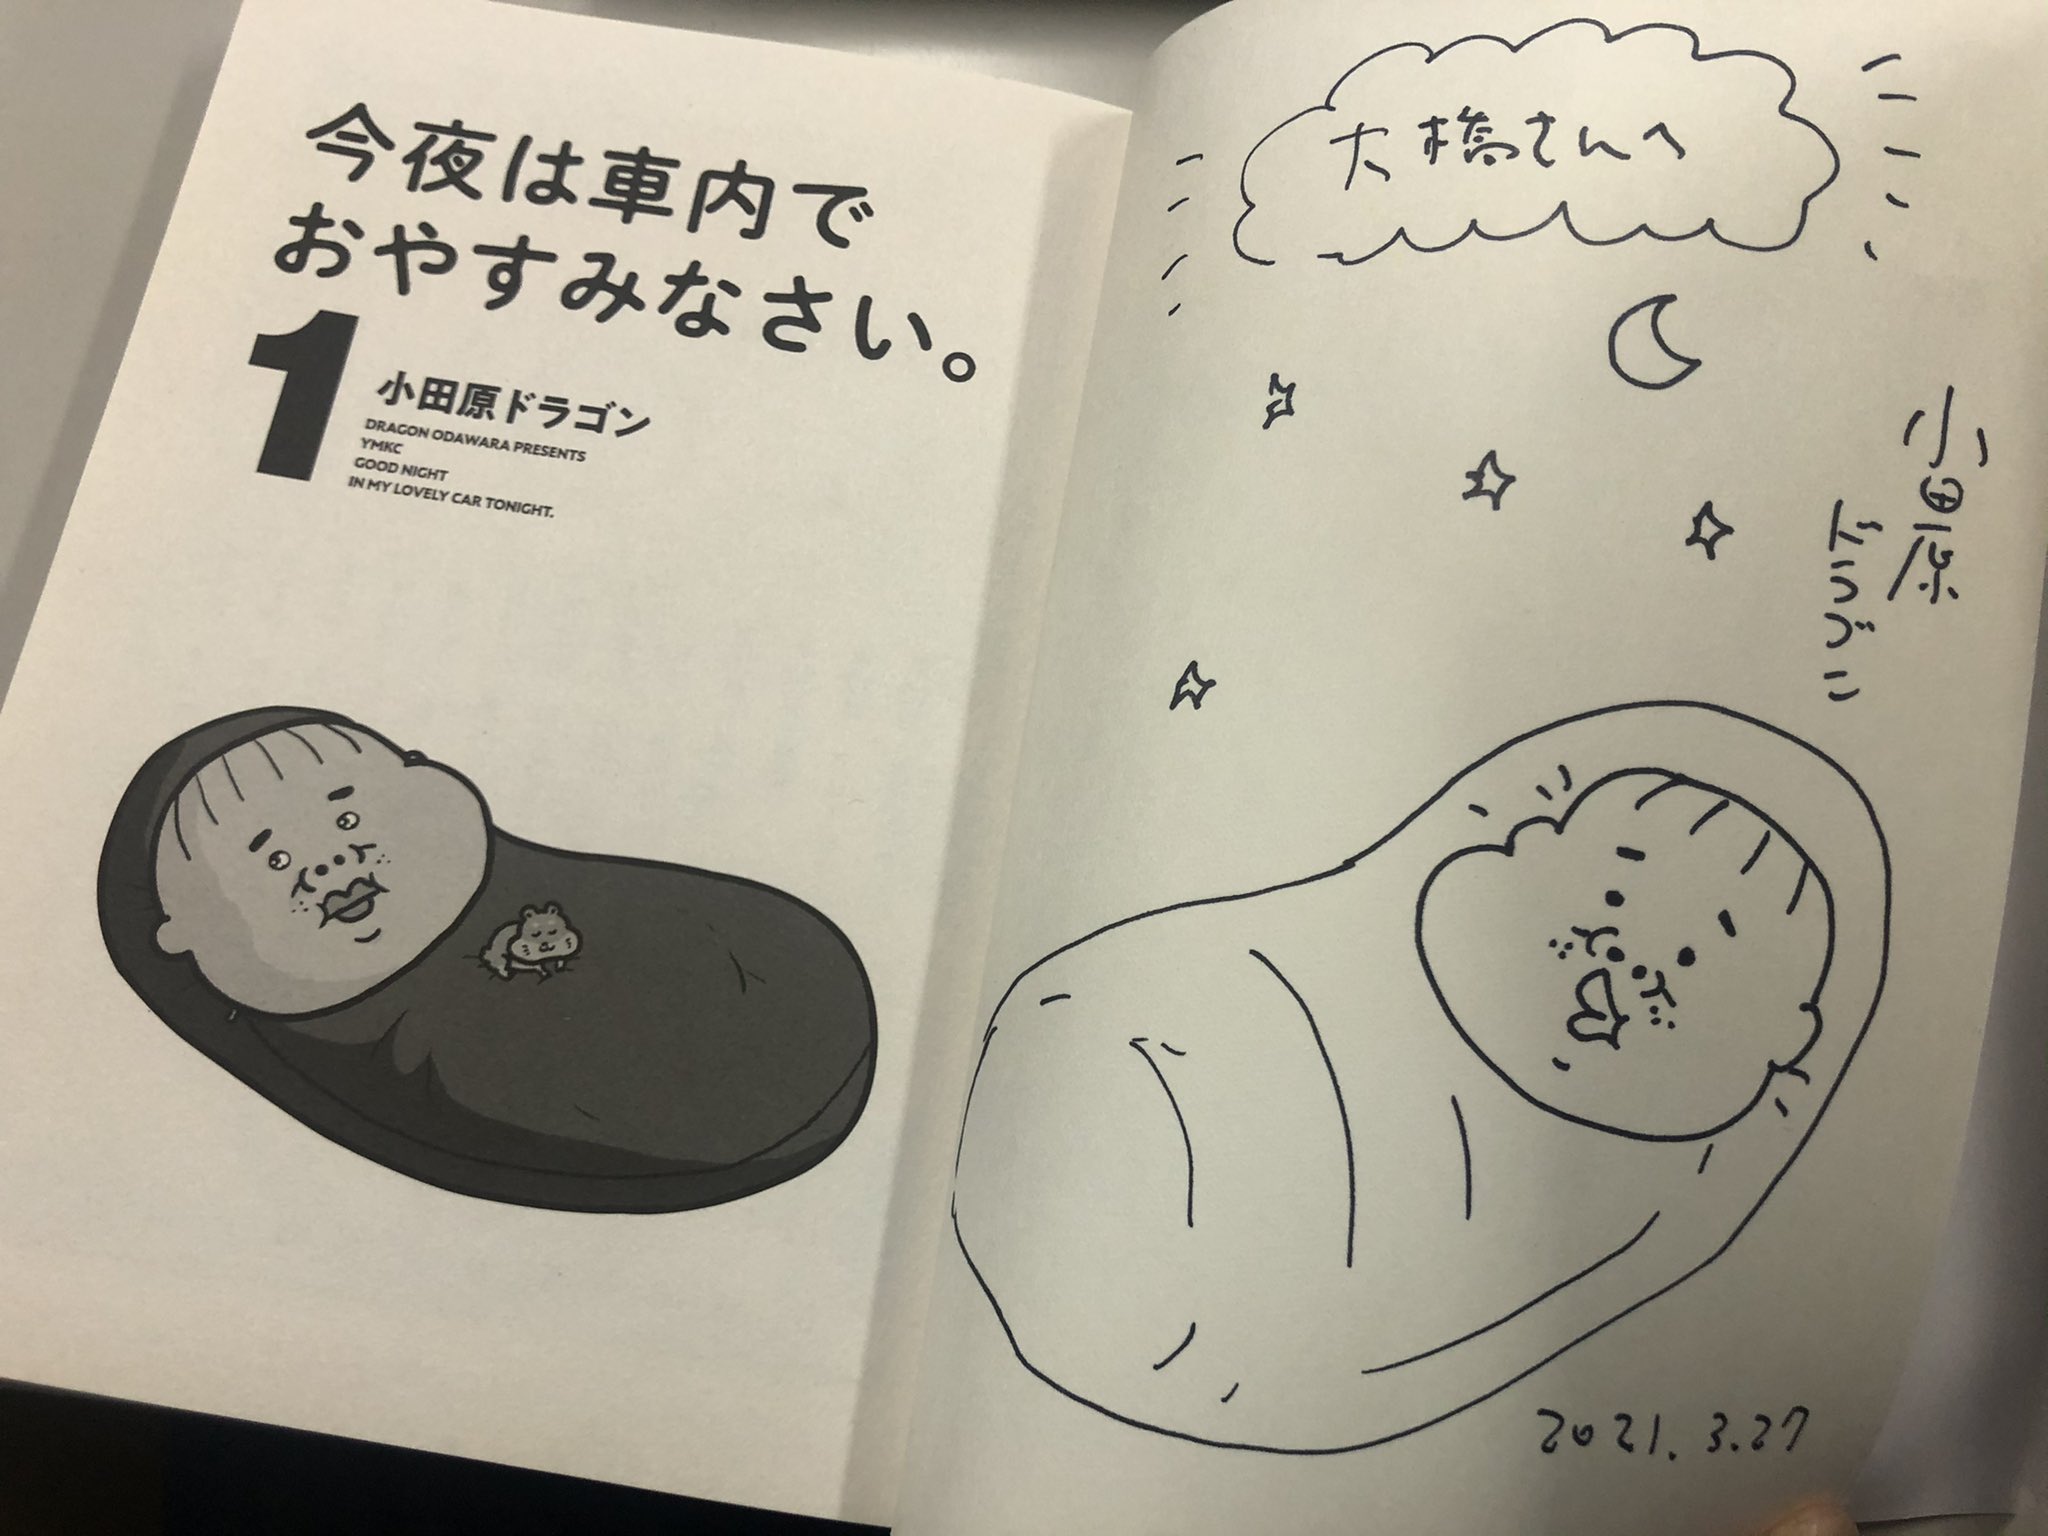 今夜は車内で
おやすみなさい。
1
小田原ドラゴン
DRAGON ODAWARA PRESENTS
YMKC
GOOD NIGHT
IN MY LOVELY CAR TONIGHT.
大橋さんへ
小田原
ドラゴン
2021.3.27